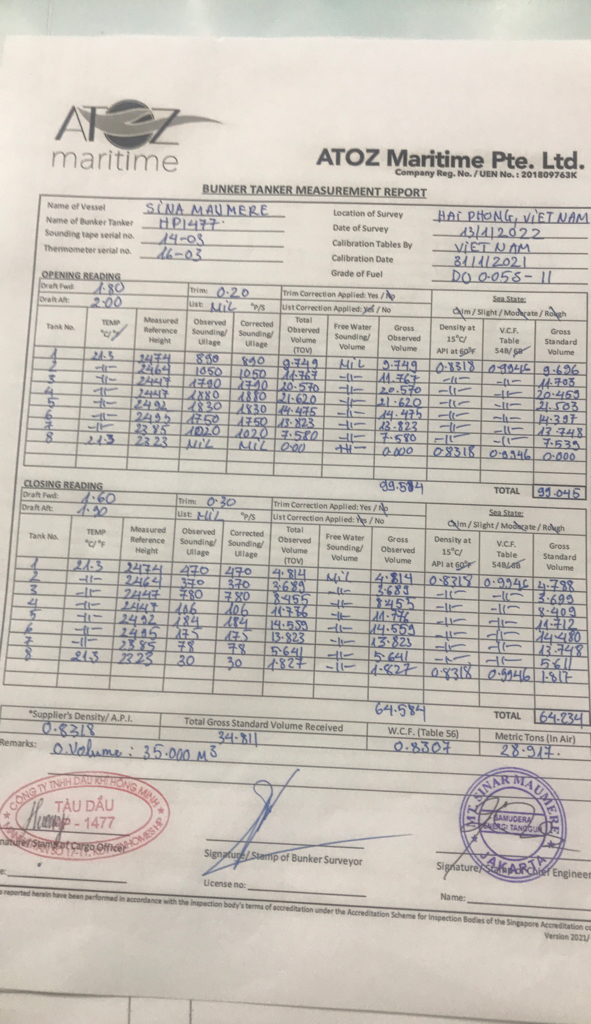 ATOZ
maritime
ATOZ Maritime Pte. Ltd.
Company Reg. No. / UEN No. : 201809763K
BUNKER TANKER MEASUREMENT REPORT
Name of Vessel SINA MAUMERE Location of Survey HAI PHONG, VIETNAM
Name of Bunker Tanker HP1477. Date of Survey 13/11/2022
Sounding tape serial no. 14-03 Calibration Tables By VIETNAM
Thermometer serial no. 16-03 Calibration Date 31/11/2021
Grade of Fuel DO 0.05S-II
OPENING READING
Draft Fwd: 1.80 Trim: 0.20 Trim Correction Applied: Yes / No Sea State:
Draft Aft: 2.00 List: NiL °P/S List Correction Applied: Yes / No Calm / Slight / Moderate / Rough
Tank No. TEMP °C/°F Measured Reference Height Observed Sounding/ Ullage Corrected Sounding/ Ullage Total Observed Volume (TOV) Free Water Sounding/ Volume Gross Observed Volume Density at 15°C/ API at 60°F V.C.F. Table 54B/6B Gross Standard Volume
1 21.3 2474 890 890 9.749 NiL 9.749 0.8318 0.9946 9.696
2 -||- 2464 1050 1050 11.767 -||- 11.767 -||- -||- 11.703
3 -||- 2447 1790 1790 20.570 -||- 20.570 -||- -||- 20.459
4 -||- 2447 1880 1880 21.620 -||- 21.620 -||- -||- 21.503
5 -||- 2492 1830 1830 14.475 -||- 14.475 -||- -||- 14.397
6 -||- 2495 1750 1750 13.823 -||- 13.823 -||- -||- 13.748
7 -||- 2385 1020 1020 7.580 -||- 7.580 -||- -||- 7.539
8 21.3 2323 NiL NiL 0.00 -||- 0.000 0.8318 0.9946 0.000
99.584 TOTAL 99.045
CLOSING READING
Draft Fwd: 1.60 Trim: 0.30 Trim Correction Applied: Yes / No Sea State:
Draft Aft: 1.90 List: NiL °P/S List Correction Applied: Yes / No Calm / Slight / Moderate / Rough
Tank No. TEMP °C/°F Measured Reference Height Observed Sounding/ Ullage Corrected Sounding/ Ullage Total Observed Volume (TOV) Free Water Sounding/ Volume Gross Observed Volume Density at 15°C/ API at 60°F V.C.F. Table 54B/6B Gross Standard Volume
1 21.3 2474 470 470 4.814 NiL 4.814 0.8318 0.9946 4.788
2 -||- 2464 370 370 3.689 -||- 3.689 -||- -||- 3.699
3 -||- 2447 780 780 8.455 -||- 8.455 -||- -||- 8.409
4 -||- 2447 106 106 11.776 -||- 11.776 -||- -||- 11.712
5 -||- 2492 184 184 14.559 -||- 14.559 -||- -||- 14.480
6 -||- 2495 175 175 13.823 -||- 13.823 -||- -||- 13.748
7 -||- 2385 78 78 5.641 -||- 5.641 -||- -||- 5.611
8 21.3 2323 30 30 1.827 -||- 1.827 0.8318 0.9946 1.817
64.584 TOTAL 64.234
*Supplier's Density/ A.P.I. Total Gross Standard Volume Received W.C.F. (Table 56) Metric Tons (In Air)
0.8318 34.811 0.8307 28.917.
Remarks: O.Volume : 35.000 m3
CÔNG TY TNHH DẦU KHÍ HỒNG MINH
TÀU DẦU
HP - 1477
MT. SINAR MAUMERE
SAMUDERA
ENERGI TANGGUH
JAKARTA
Signature/ Stamp of Cargo Officer Signature/ Stamp of Bunker Surveyor Signature/ Stamp of Chief Engineer
License no.: Name:
reported herein have been performed in accordance with the inspection body's terms of accreditation under the Accreditation Scheme for Inspection Bodies of the Singapore Accreditation
Version 2021/